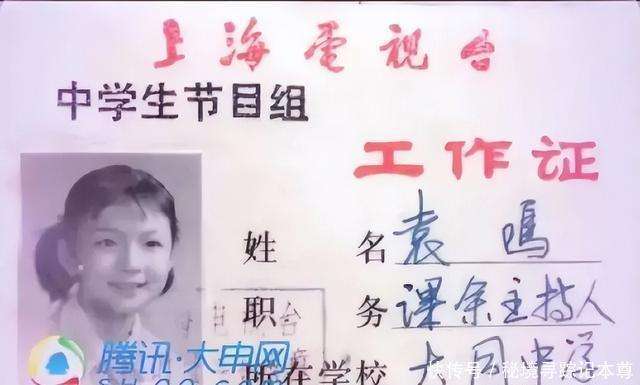 上海电视台
中学生节目组
工作证
姓 名 袁鸣
职 务 课余主持人
所在学校 大同中学
台
腾讯·大申网
快传号/秘境寻踪记本尊